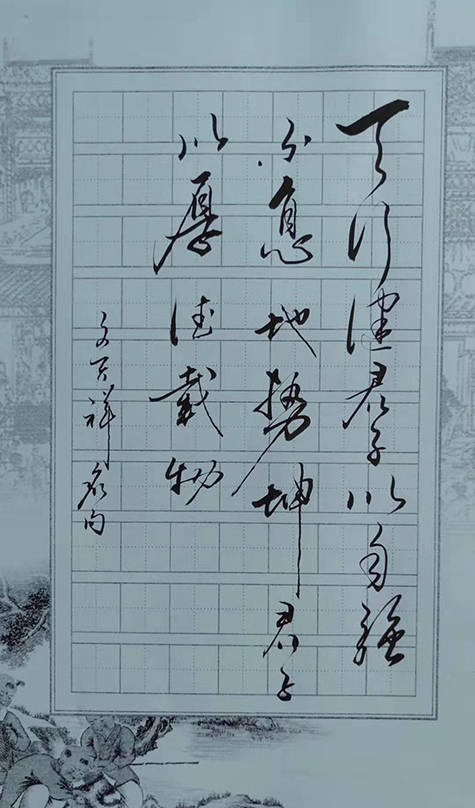 天行健君子以自强
不息地势坤君子
以厚德载物
文天祥名句